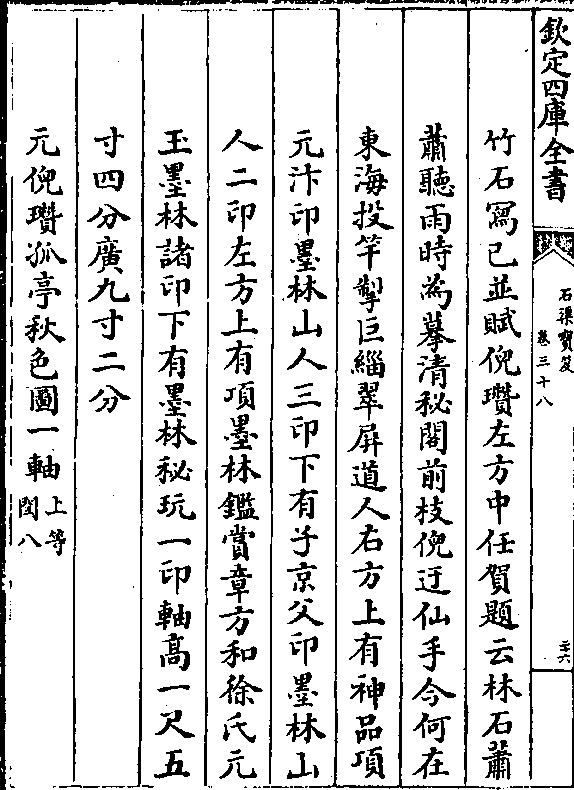 欽定四庫全書
石渠寶笈
卷三十八
二十六
竹石寫已並賦倪瓚左方中任賀題云林石蕭
蕭聽雨時為摹清秘閣前枝倪迂仙手今何在
東海投竿掣巨緇翠屏道人右方上有神品項
元汴印墨林山人三印下有子京父印墨林山
人二印左方上有項墨林鑑賞章方和徐氏元
玉墨林諸印下有墨林秘玩一印軸髙一尺五
寸四分廣九寸二分
元倪瓚孤亭秋色圖一軸上等
閏八